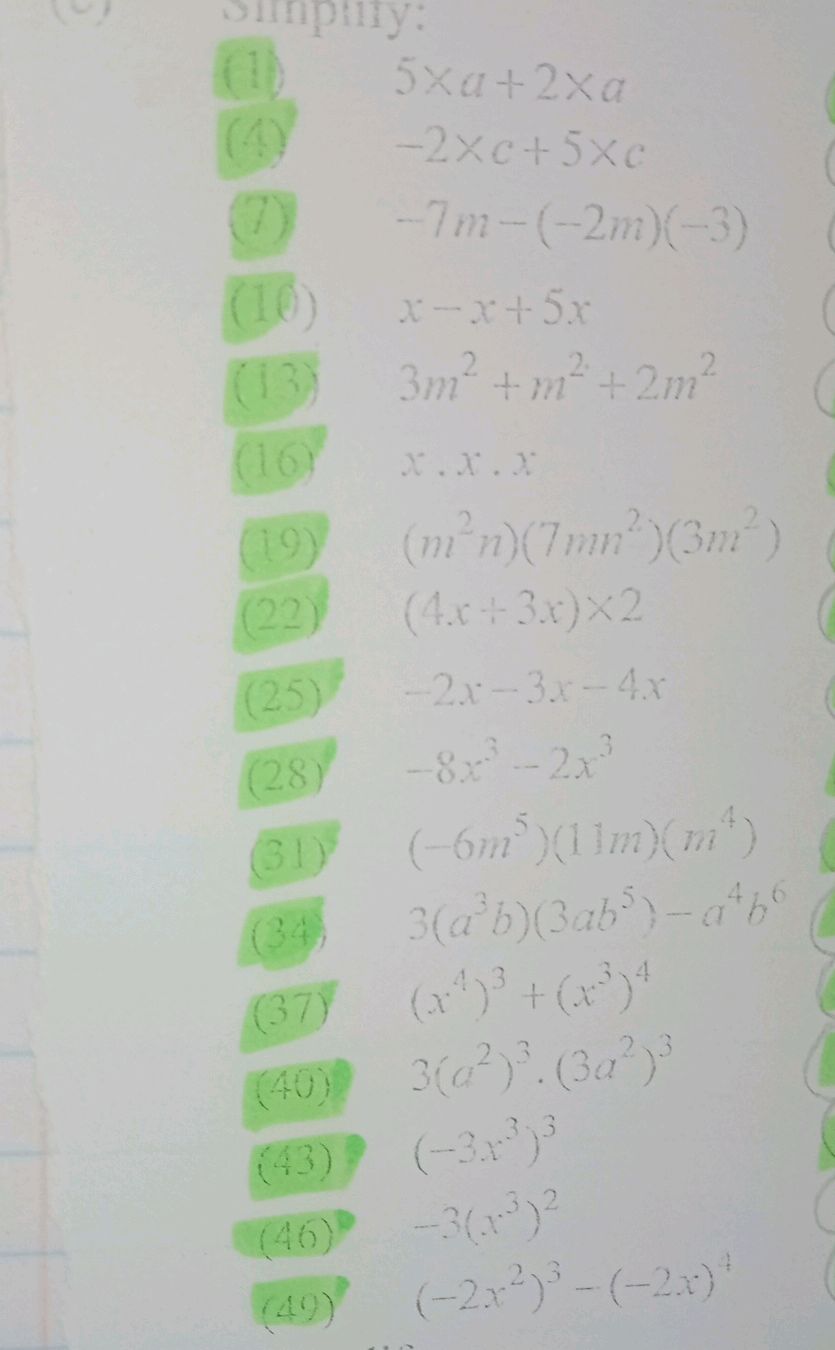 (c) Simplify:
(1) 5×a+2×a
(4) −2×c+5×c
(7) −7m−(−2m)(−3)
(10) x−x+5x
(13) 3m² + m² + 2m²
(16) x . x . x
(19) (m²n)(7mn²)(3m²)
(22) (4x+3x)×2
(25) −2x−3x−4x
(28) −8x³ − 2x³
(31) (−6m⁵)(11m)(m⁴)
(34) 3(a³b)(3ab⁵) − a⁴b⁶
(37) (x⁴)³ + (x³)⁴
(40) 3(a²)³ . (3a²)³
(43) (−3x³)³
(46) −3(x³)²
(49) (−2x²)³ − (−2x)⁴